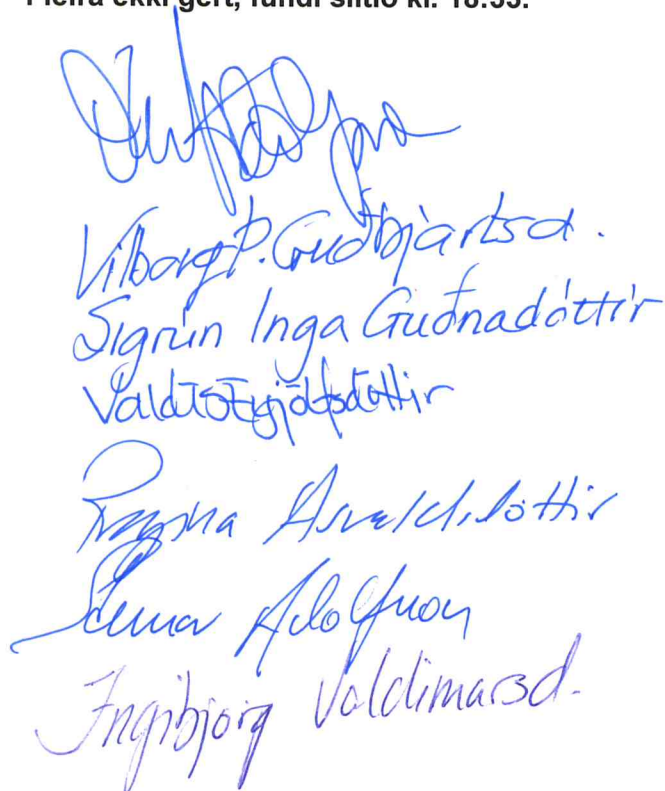 Fleira ekki gert, fundi slitið kl. 18:55.
Vilborg Þ. Guðbjartsd.
Sigrún Inga Guðnadóttir
Valdís Eyjólfsdóttir
Regína Ásvaldsdóttir
Adolfsson
Ingibjörg Valdimarsd.